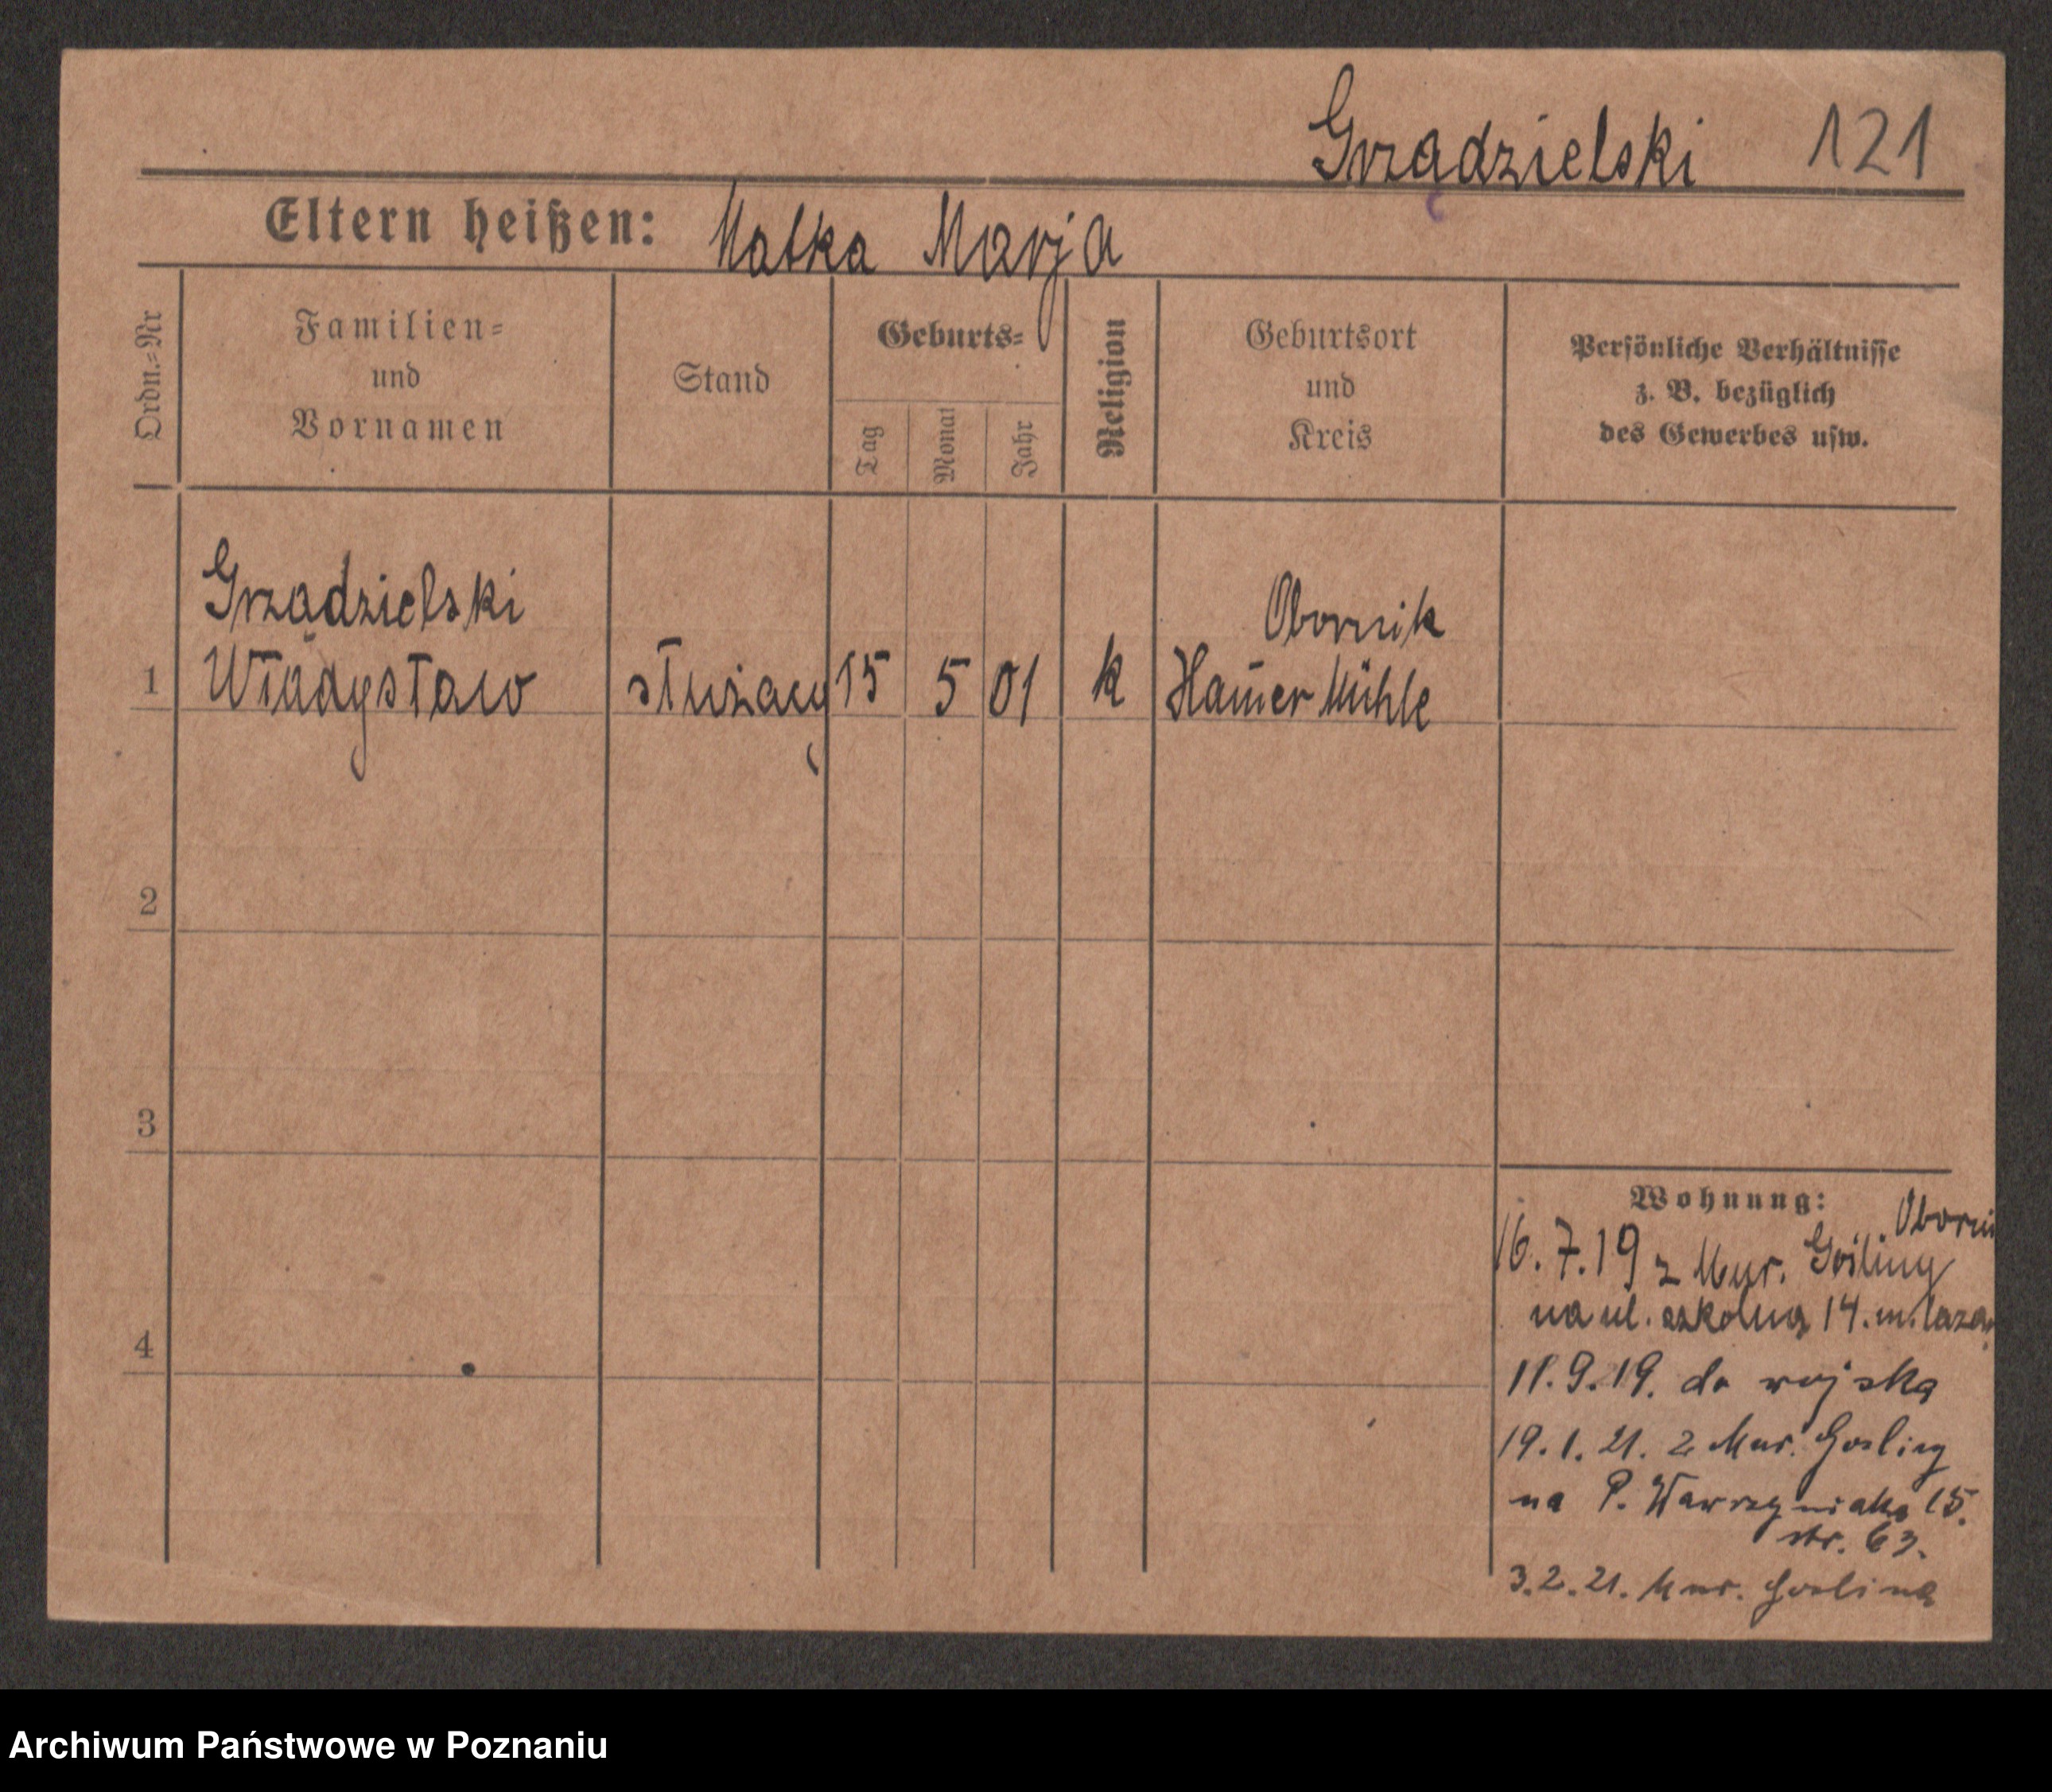 Grządzielski 121
Eltern heißen: Matka Marja
Ordn.-Nr
Familien-
und
Vornamen
Stand
Geburts-
Tag
Monat
Jahr
Religion
Geburtsort
und
Kreis
Persönliche Verhältnisse
z. B. bezüglich
des Gewerbes usw.
Grządzielski
Obornik
1 Władysław służący 15 5 01 k Hamer Mühle
2
3
4
Wohnung:
Oborni
16.7.19 z Mur. Gośliny
na ul. szkolną 14. m.
11.9.19. do wojska
19.1.21. z Mur. Gosliny
na P. Wawrzyniaka 15.
str. 63.
3.2.21. Mur. Goslina
Archiwum Państwowe w Poznaniu